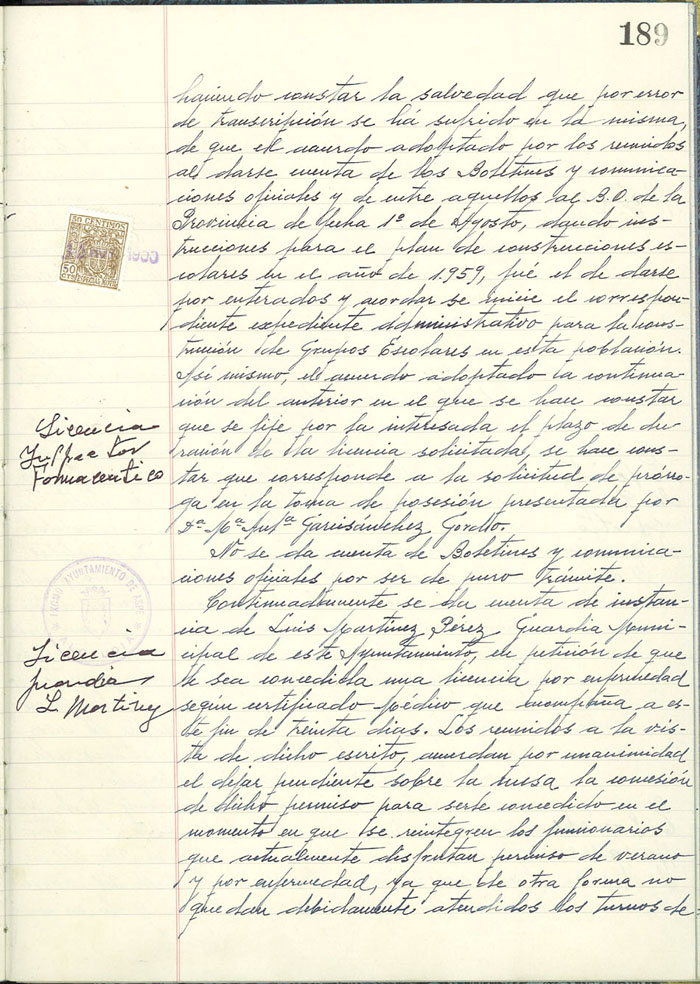 189
haciendo constar la salvedad que por error
de transcripción se há sufrido en la misma,
de que el acuerdo adoptado por los reunidos
al darse cuenta de los Boletines y comunica-
ciones oficiales y de entre aquellos al B.O. de la
Provincia de fecha 1º de Agosto, dando ins-
trucciones para el plan de construcciones es-
colares en el año de 1.959, fué el de darse
por enterados y acordar se inicie el correspon-
diente expediente administrativo para la cons-
trucción de Grupos Escolares en esta población.
Así mismo, el acuerdo adoptado a continua-
ción del anterior en el que se hace constar
que se fije por la interesada el plazo de du-
ración de la licencia solicitada, se hace cons-
tar que corresponde a la solicitud de prórro-
ga en la toma de posesión presentada por
Dª Mª Antª Garcisánchez Gordo.
No se da cuenta de Boletines y comunica-
ciones oficiales por ser de puro trámite.
Continuadamente se da cuenta de instan-
cia de Luis Martinez Pérez Guardia Muni-
cipal de este Ayuntamiento, en petición de que
le sea concedida una licencia por enfermedad
según certificado médico que acompaña a es-
te fin de treinta dias. Los reunidos a la vis-
ta de dicho escrito, acuerdan por unanimidad
el dejar pendiente sobre la mesa la concesión
de dicho permiso para serle concedido en el
momento en que se reintegren los funcionarios
que actualmente disfrutan permiso de verano
y por enfermedad, ya que de otra forma no
quedan debidamente atendidos los turnos de-
50 CENTIMOS
50
CTS
ESPECIAL MOVIL
Licencia
Inspector
Farmacentico
AYUNTAMIENTO DE
Licencia
guardia
L. Martinez